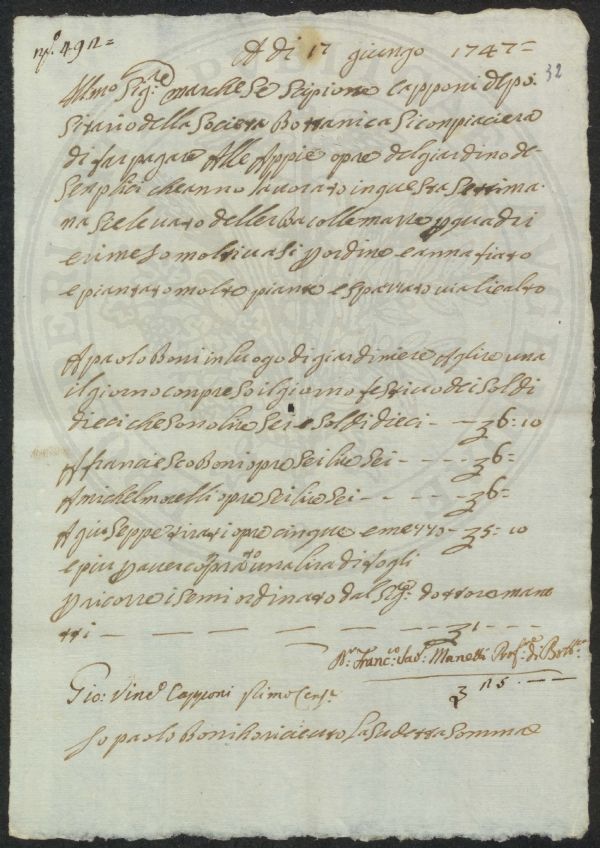 N.º 492=
A di 17 giungo 1747=
32
Illmo Sig.re marchese Scipione Capponi deposi
Sitario della Societa Bottanica Si conpiacera
di far pagare Alle Appie opre del giardino de
Senplici che anno lavorato in questa Settima
na Si e levato dell'erba colle marre p quadri
e rimeso molti vasi p ordine e annafiato
e piantato molte piante e spazzato viali e altro
A paolo Boni in luogo di giardiniere A lire una
il giorno conpreso il giorno festivo dei Soldi
dieci che sono lire Sei e soldi dieci - - - 6: 10
A franciesco Boni opre Sei lire Sei - - - - 6=
A michel morelli opre Sei lire Sei - - - - - 6=
A giuseppe tirati opre cinque e mezzo - 5: 10
e piu p aver conprato una lira di fogli
p ricorre i Semi ordinato dal Sig.e dottore mane
tti - - - - - - - 1 - - -
D.r Franc.co Sav.o Manetti Prof.re di Bott.ca
25. - -
Gio: Vinc.o Capponi Primo Cens.e
Io paolo Boni ho ricieuto la Sudetta Somma